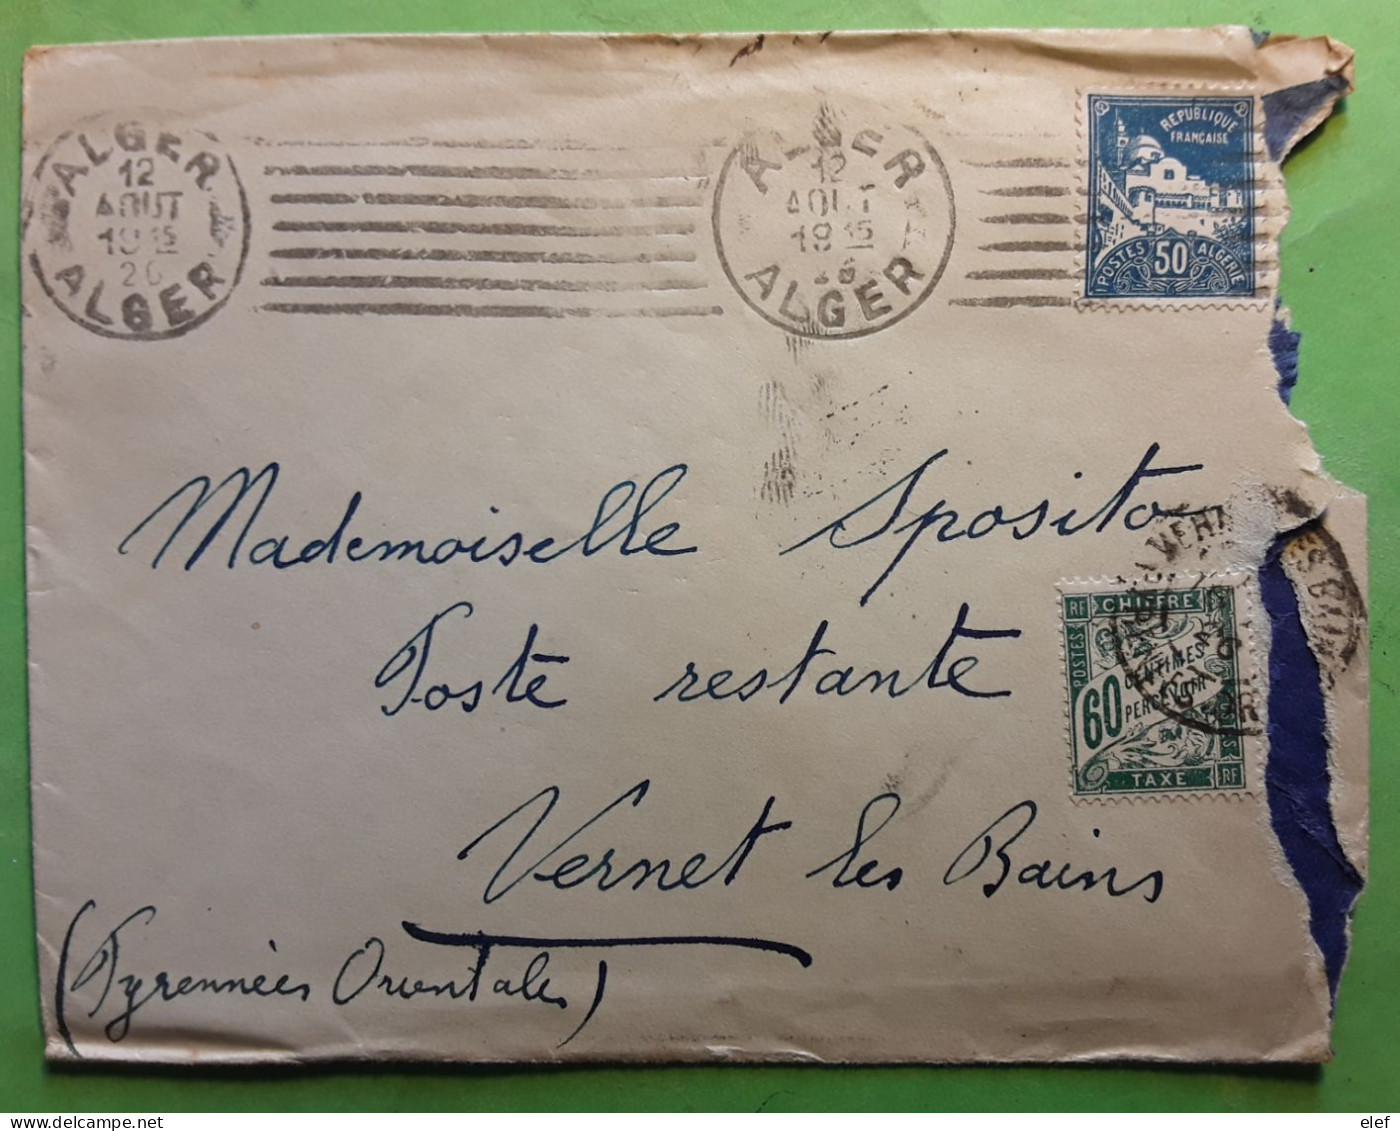 ALGER
12
AOUT
19 15
26
ALGER
ALGER
12
AOUT
19 15
26
ALGER
REPUBLIQUE
FRANÇAISE
POSTES 50 ALGERIE
Mademoiselle Sposito
Poste restante
Vernet les Bains
(Pyrennées Orientales)
RF CHIFFRE
POSTES
60 CENTIMES
PERCEVOIR
TAXE RF
elef